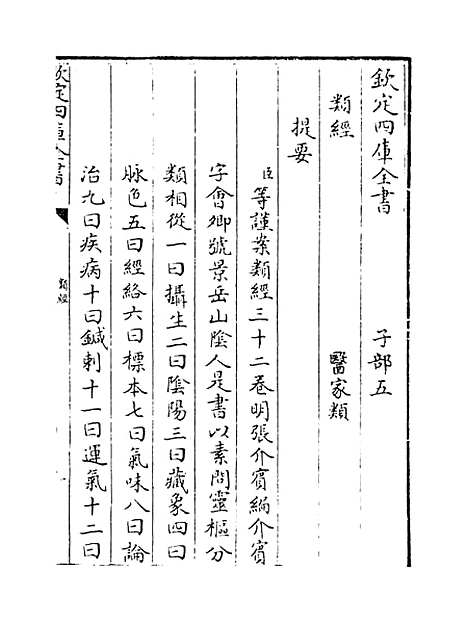 欽定四庫全書 子部五
類經 醫家類
提要
臣等謹案類經三十二卷明張介賓編介賓
字會卿號景岳山陰人是書以素問靈樞分
類相從一曰攝生二曰陰陽三曰藏象四曰
脉色五曰經絡六曰標本七曰氣味八曰論
治九曰疾病十曰鍼刺十一曰運氣十二曰
欽定四庫全書
類經